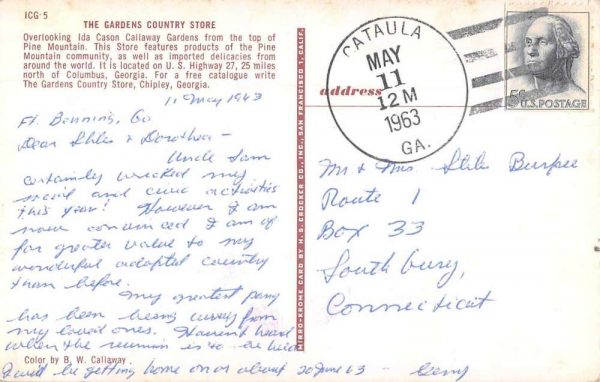 ICG-5
THE GARDENS COUNTRY STORE
Overlooking Ida Cason Callaway Gardens from the top of
Pine Mountain. This Store features products of the Pine
Mountain community, as well as imported delicacies from
around the world. It is located on U. S. Highway 27, 25 miles
north of Columbus, Georgia. For a free catalogue write
The Gardens Country Store, Chipley, Georgia.
11 May 1963
Ft. Benning, Ga
Dear Stiles & Dorothea -
Uncle Sam
certainly wrecked my
social and civic activities
this year! However I am
now convinced I am of
far greater value to my
wonderful adopted country
than before.
My greatest pang
has been being away from
my loved ones. Haven't heard
when the reunion is to be held
I will be getting home on or about 20 June 63 -
Color by B. W. Callaway
MIRRO-KROME CARD BY H. S. CROCKER CO., INC., SAN FRANCISCO 1, CALIF.
address
CATAULA
MAY
11
12 M
1963
GA.
5c
U.S. POSTAGE
Mr & Mrs. Stiles Burpee
Route 1
Box 33
Southbury,
Connecticut